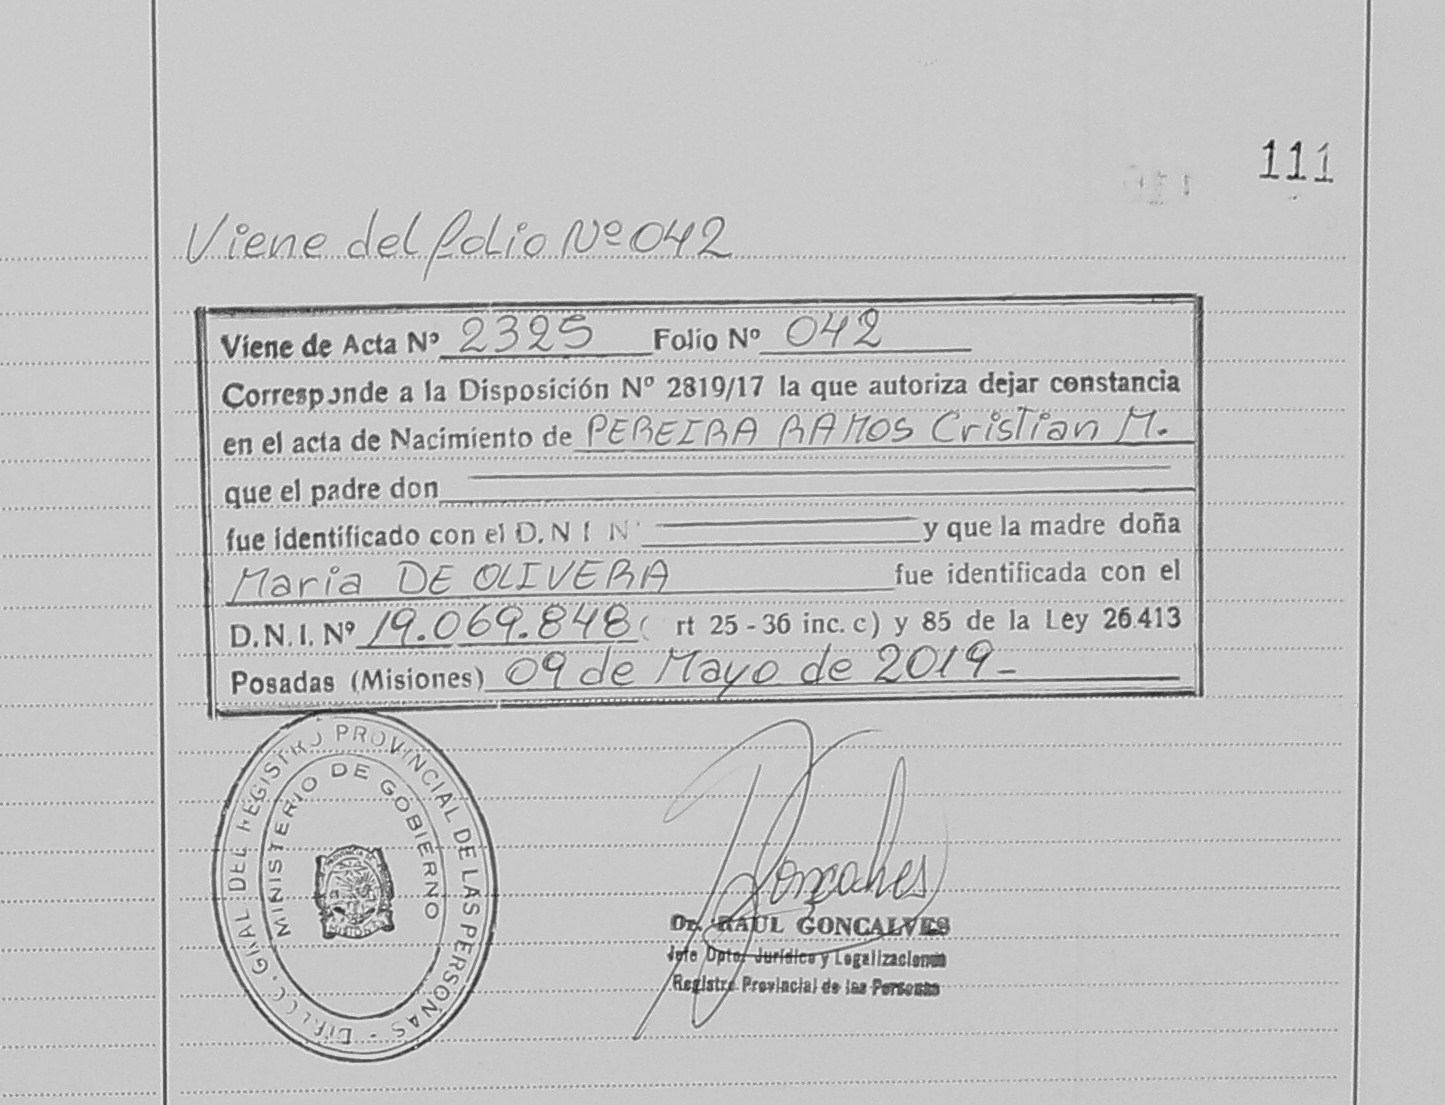 111
Viene del folio Nº 042
Viene de Acta Nº 2325 Folio Nº 042
Corresponde a la Disposición Nº 2819/17 la que autoriza dejar constancia
en el acta de Nacimiento de PEREIRA RAMOS Cristian M.
que el padre don
fue identificado con el D.N I N° y que la madre doña
Maria DE OLIVERA fue identificada con el
D.N.I. Nº 19.069.848 ( rt 25 - 36 inc. c) y 85 de la Ley 26.413
Posadas (Misiones) 09 de Mayo de 2019 -
DIRECC. GRAL DEL REGISTRO PROVINCIAL DE LAS PERSONAS -
MINISTERIO DE GOBIERNO
Gonçalves
Dr. RAUL GONCALVES
Jefe Dpto. Jurídico y Legalizaciones
Registro Provincial de las Personas